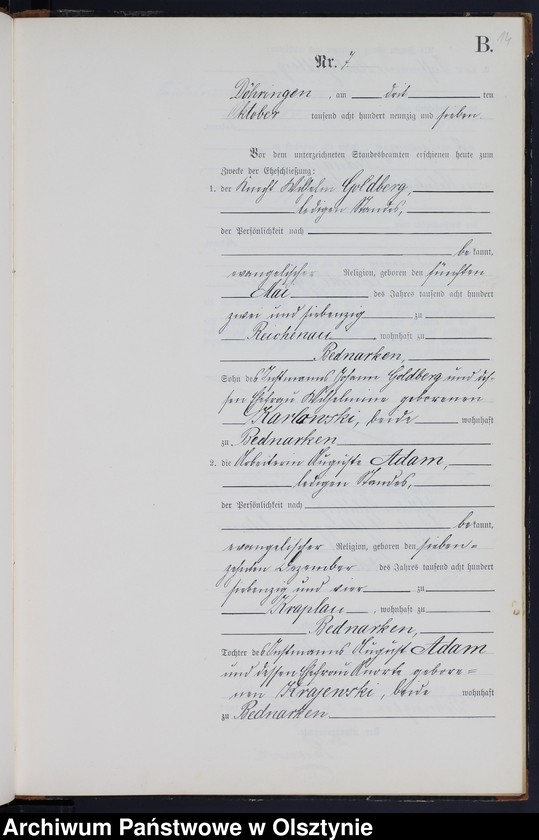 B. 14
Nr. 7
Döhringen, am drit ten
Oktober tausend acht hundert neunzig und sieben.
Vor dem unterzeichneten Standesbeamten erschienen heute zum
Zwecke der Eheschließung:
1. der Knecht Wilhelm Goldberg,
ledigen Standes,
der Persönlichkeit nach
be kannt,
evangelischer Religion, geboren den fünften
Mai des Jahres tausend acht hundert
zwei und siebenzig zu
Reichenau, wohnhaft zu
Bednarken,
Sohn des Instmanns Johann Goldberg und des-
sen Ehefrau Wilhelmine geborenen
Karlowski, beide wohnhaft
zu Bednarken
2. die Arbeiterin Auguste Adam,
ledigen Standes,
der Persönlichkeit nach
be kannt,
evangelischer Religion, geboren den sieben-
zehnten Dezember des Jahres tausend acht hundert
siebenzig und vier zu
Kraplau, wohnhaft zu
Bednarken,
Tochter des Instmanns August Adam
und dessen Ehefrau gebore=
nen Krajewski, beide wohnhaft
zu Bednarken
Archiwum Państwowe w Olsztynie